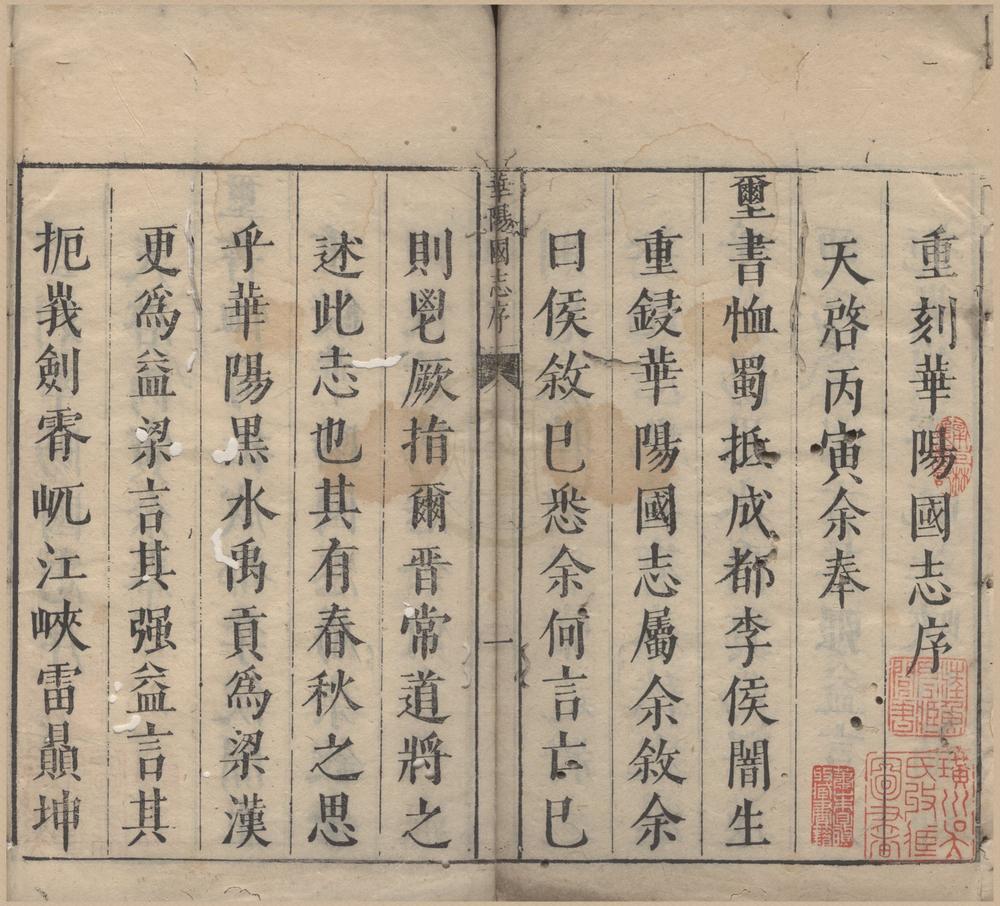 重刻華陽國志序
天啓丙寅余奉
璽書恤蜀抵成都李侯闇生
重鋟華陽國志屬余敘余
曰侯敘已悉余何言亡已
華陽國志序
一
則鬯厥指爾晉常道將之
述此志也其有春秋之思
乎華陽黑水禹貢為梁漢
更爲益梁言其强益言其
扼峩劍霄屼江峽雷贔坤